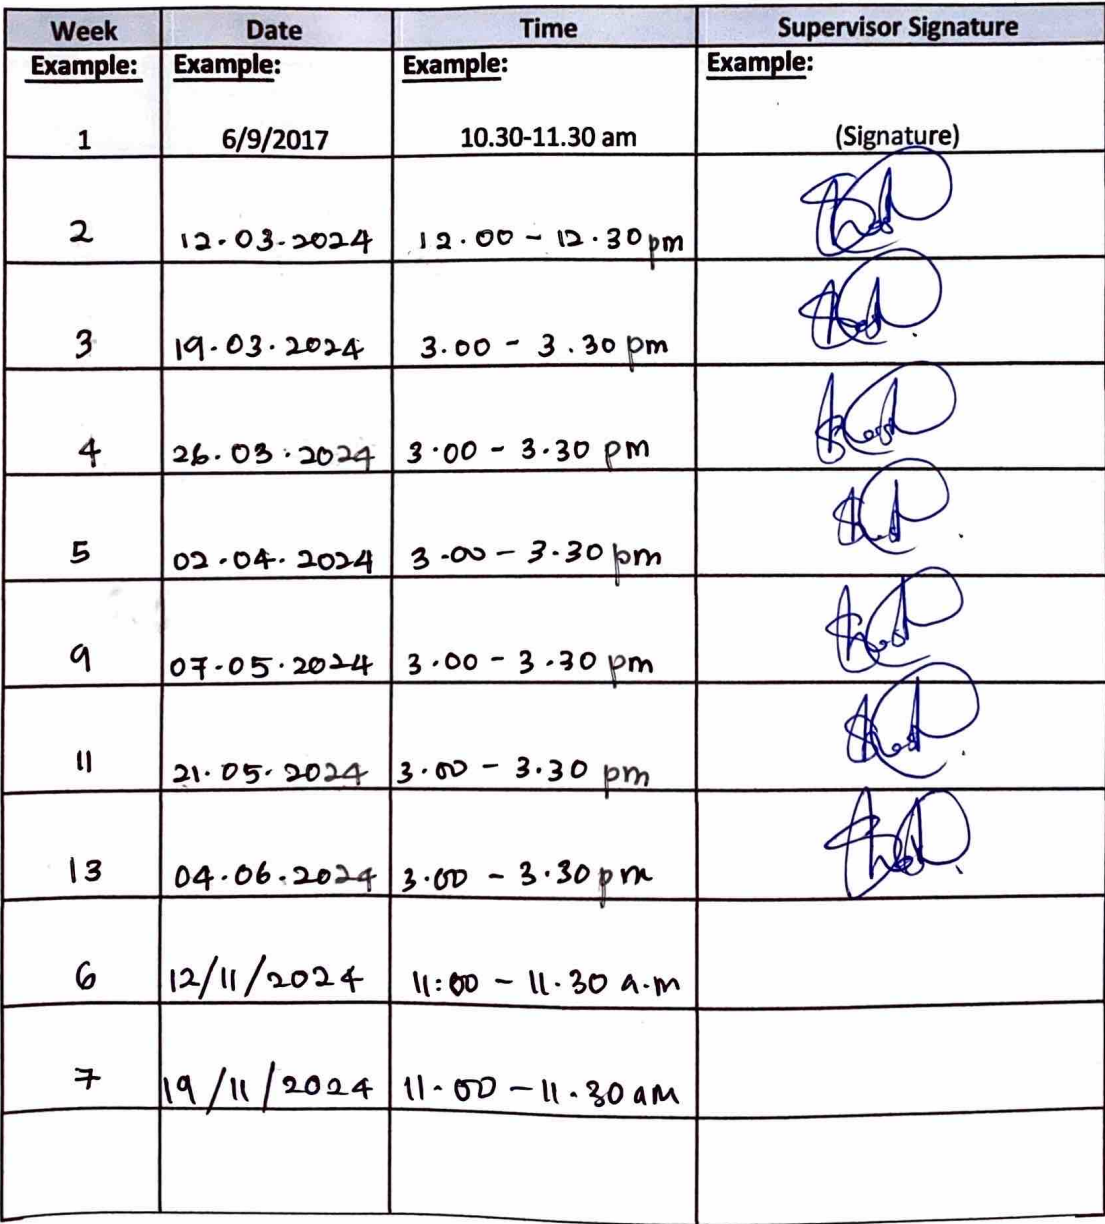 Week Date Time Supervisor Signature
Example: Example: Example: Example:
1 6/9/2017 10.30-11.30 am (Signature)
2 12.03.2024 12.00 - 12.30 pm
3 19.03.2024 3.00 - 3.30 pm
4 26.03.2024 3.00 - 3.30 pm
5 02.04.2024 3.00 - 3.30 pm
9 07.05.2024 3.00 - 3.30 pm
11 21.05.2024 3.00 - 3.30 pm
13 04.06.2024 3.00 - 3.30 pm
6 12/11/2024 11:00 - 11.30 a.m
7 19/11/2024 11.00 - 11.30 am